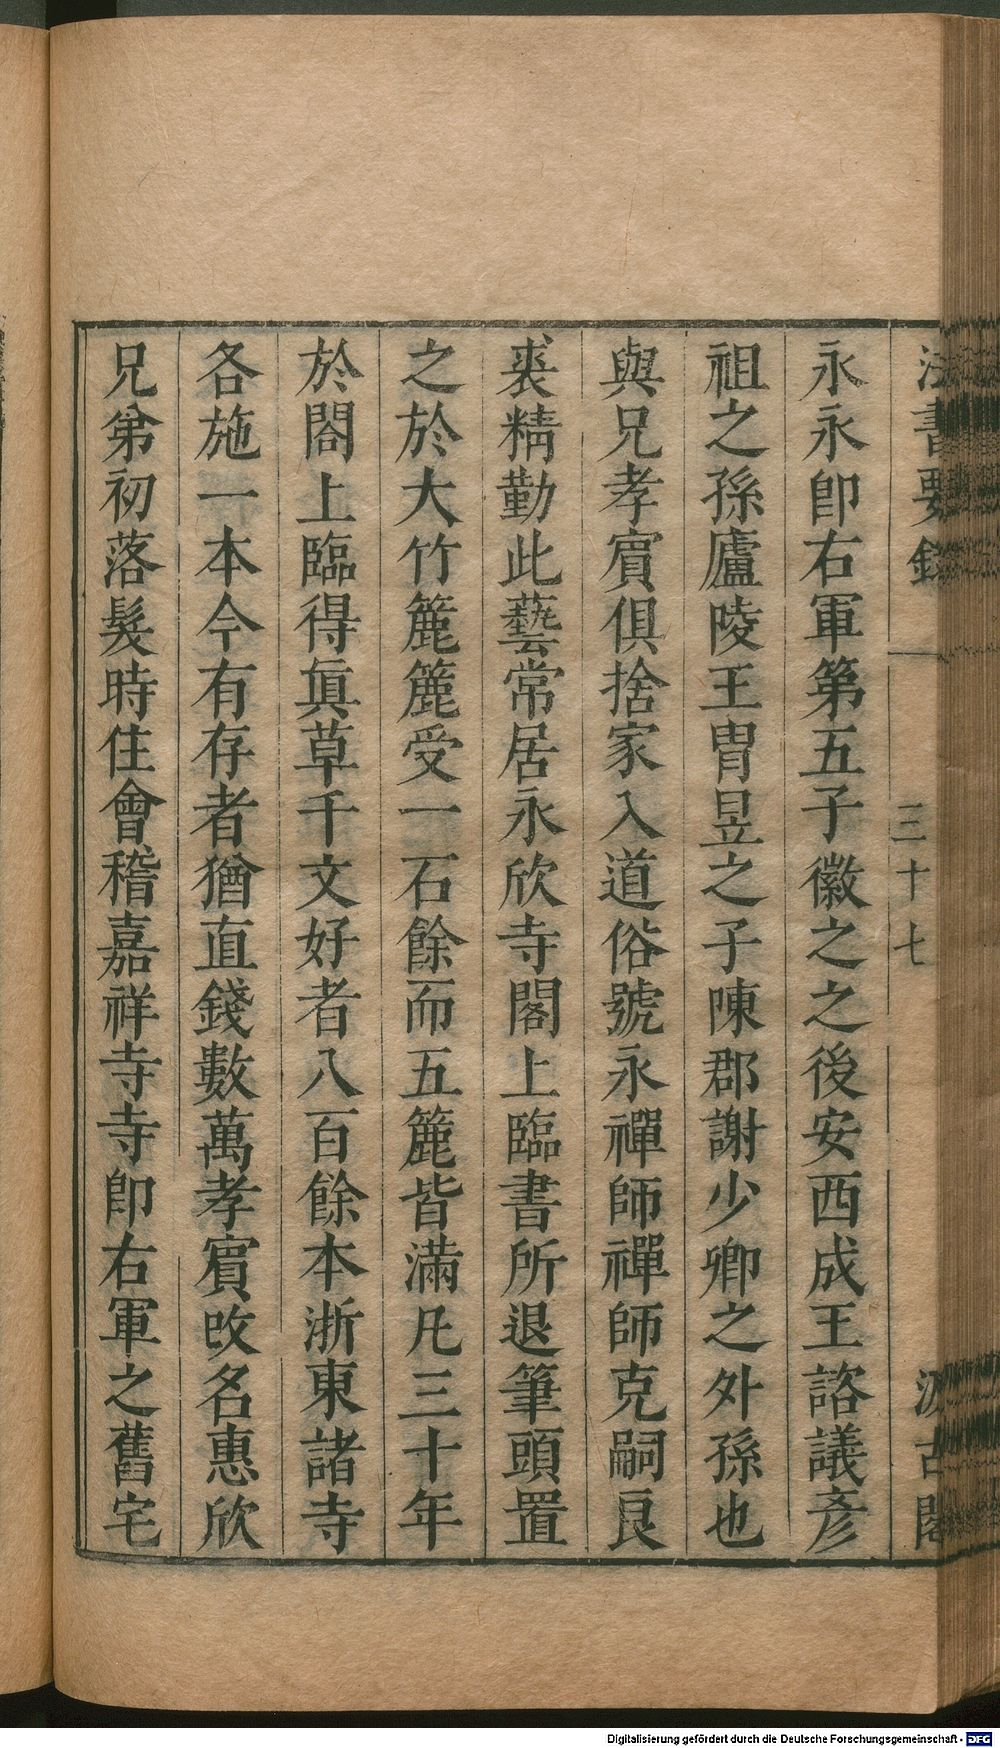 法書要錄
三十七
汲古閣
永永卽右軍第五子徽之之後安西成王諮議彥
祖之孫廬陵王胄昱之子陳郡謝少卿之外孫也
與兄孝賔俱捨家入道俗號永禪師禪師克嗣良
裘精勤此藝常居永欣寺閣上臨書所退筆頭置
之於大竹簏簏受一石餘而五簏皆滿凡三十年
於閤上臨得眞草千文好者八百餘本浙東諸寺
各施一本今有存者猶直錢數萬孝賔改名惠欣
兄弟初落髮時住會稽嘉祥寺寺卽右軍之舊宅
Digitalisierung gefördert durch die Deutsche Forschungsgemeinschaft - DFG